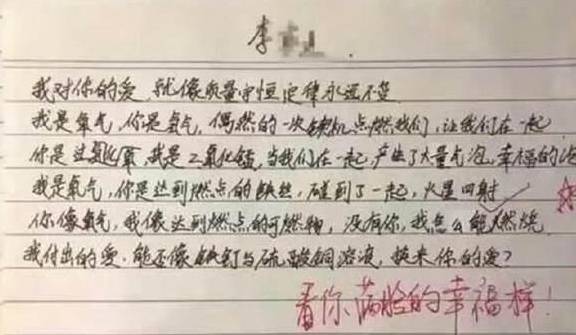 李
我对你的爱,就像质量守恒定律永远不变
我是氧气,你是氢气,偶然的一次契机点燃我们,让我们在一起
你是过氧化氢,我是二氧化锰,当我们在一起,产生了大量气泡,幸福的泡
我是氧气,你是达到燃点的铁丝,碰到了一起,火星四射
你像氧气,我像达到燃点的可燃物,没有你,我怎么能燃烧
我付出的爱,能否像铁钉与硫酸铜溶液,换来你的爱?
看你满脸的幸福样!